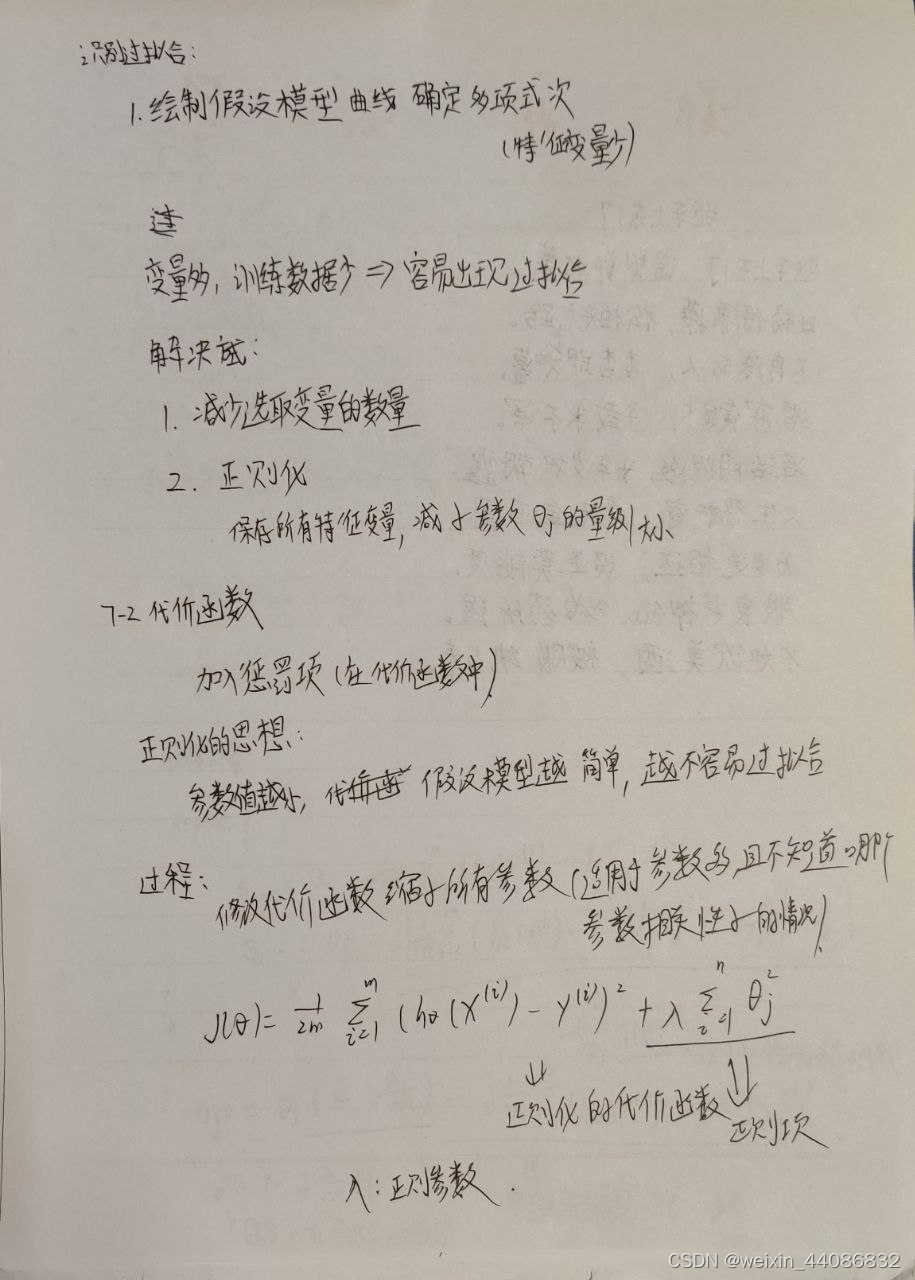 识别过拟合:
1. 绘制假设模型曲线 确定多项式次
(特征变量少)
变量多, 训练数据少 => 容易出现过拟合
解决方法:
1. 减少选取变量的数量
2. 正则化
保存所有特征变量, 减小参数 θj 的量级大小
7-2 代价函数
加入惩罚项 (在代价函数中)
正则化的思想:
参数值越小, 假设模型越 简单, 越不容易过拟合
过程:
修改代价函数 缩小所有参数 (适用于参数多, 且不知道哪个
参数相关性小的情况)
J(θ) = 1/2m ∑_{i=1}^{m} (hθ(x^{(i)}) - y^{(i)})² + λ ∑_{i=1}^{n} θj²
正则化的代价函数
正则项
λ: 正则参数.
CSDN @weixin_44086832